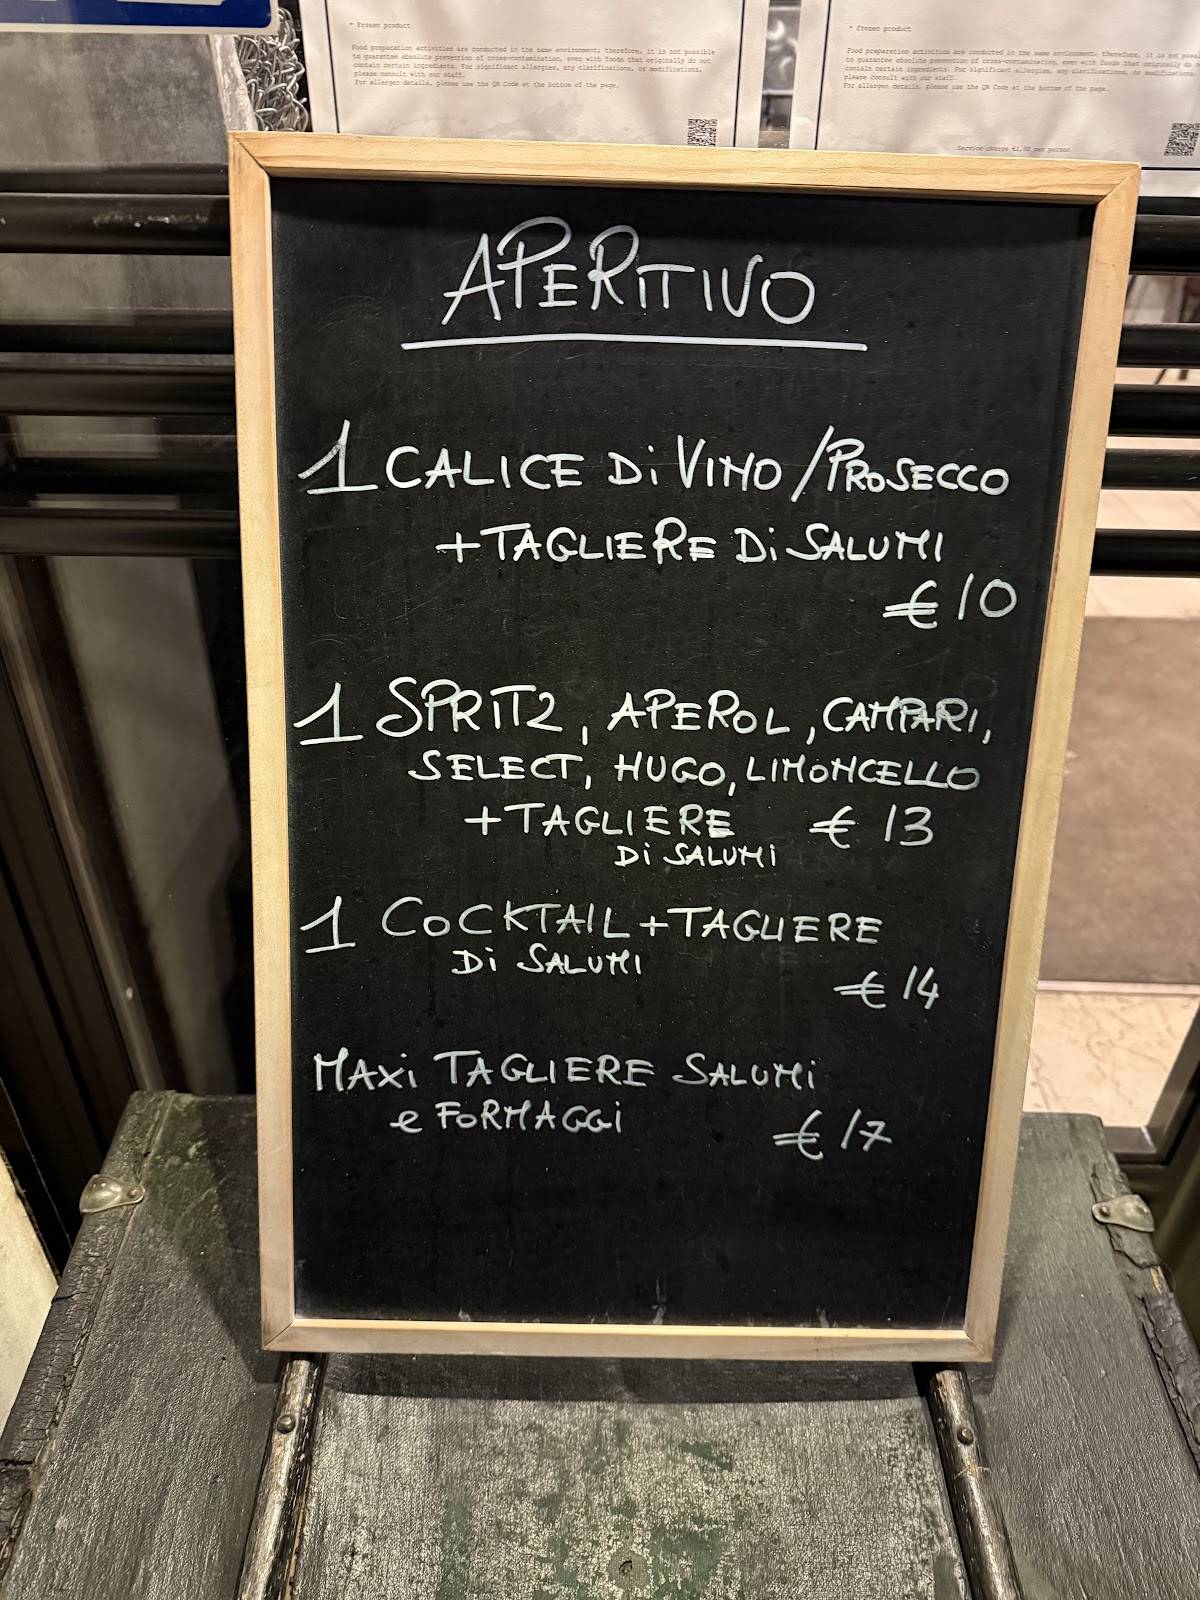 * Frozen product
Food preparation activities are conducted in the same environment; therefore, it is not possible
to guarantee absolute prevention of cross-contamination, even with foods that originally do not
contain certain ingredients. For significant allergies, any clarifications, or modifications,
please consult with our staff.
For allergen details, please use the QR Code at the bottom of the page.
* Frozen product
Food preparation activities are conducted in the same environment; therefore, it is not
to guarantee absolute prevention of cross-contamination, even with foods that originally do not
contain certain ingredients. For significant allergies, any clarifications, or modifications,
please consult with our staff.
For allergen details, please use the QR Code at the bottom of the page.
Service charge €1,50 per person
APERITIVO
1 CALICE Di VINO/PROSECCO
+TAGLIERE Di SALUMI
€ 10
1 SPRITZ, APEROL, CAMPARI,
SELECT, HUGO, LIMONCELLO
+TAGLIERE € 13
Di SALUMi
1 COCKTAIL+TAGLIERE
Di SALUMI
€ 14
MAXi TAGLIERE SALUMi
e FORMAGGi
€ 17